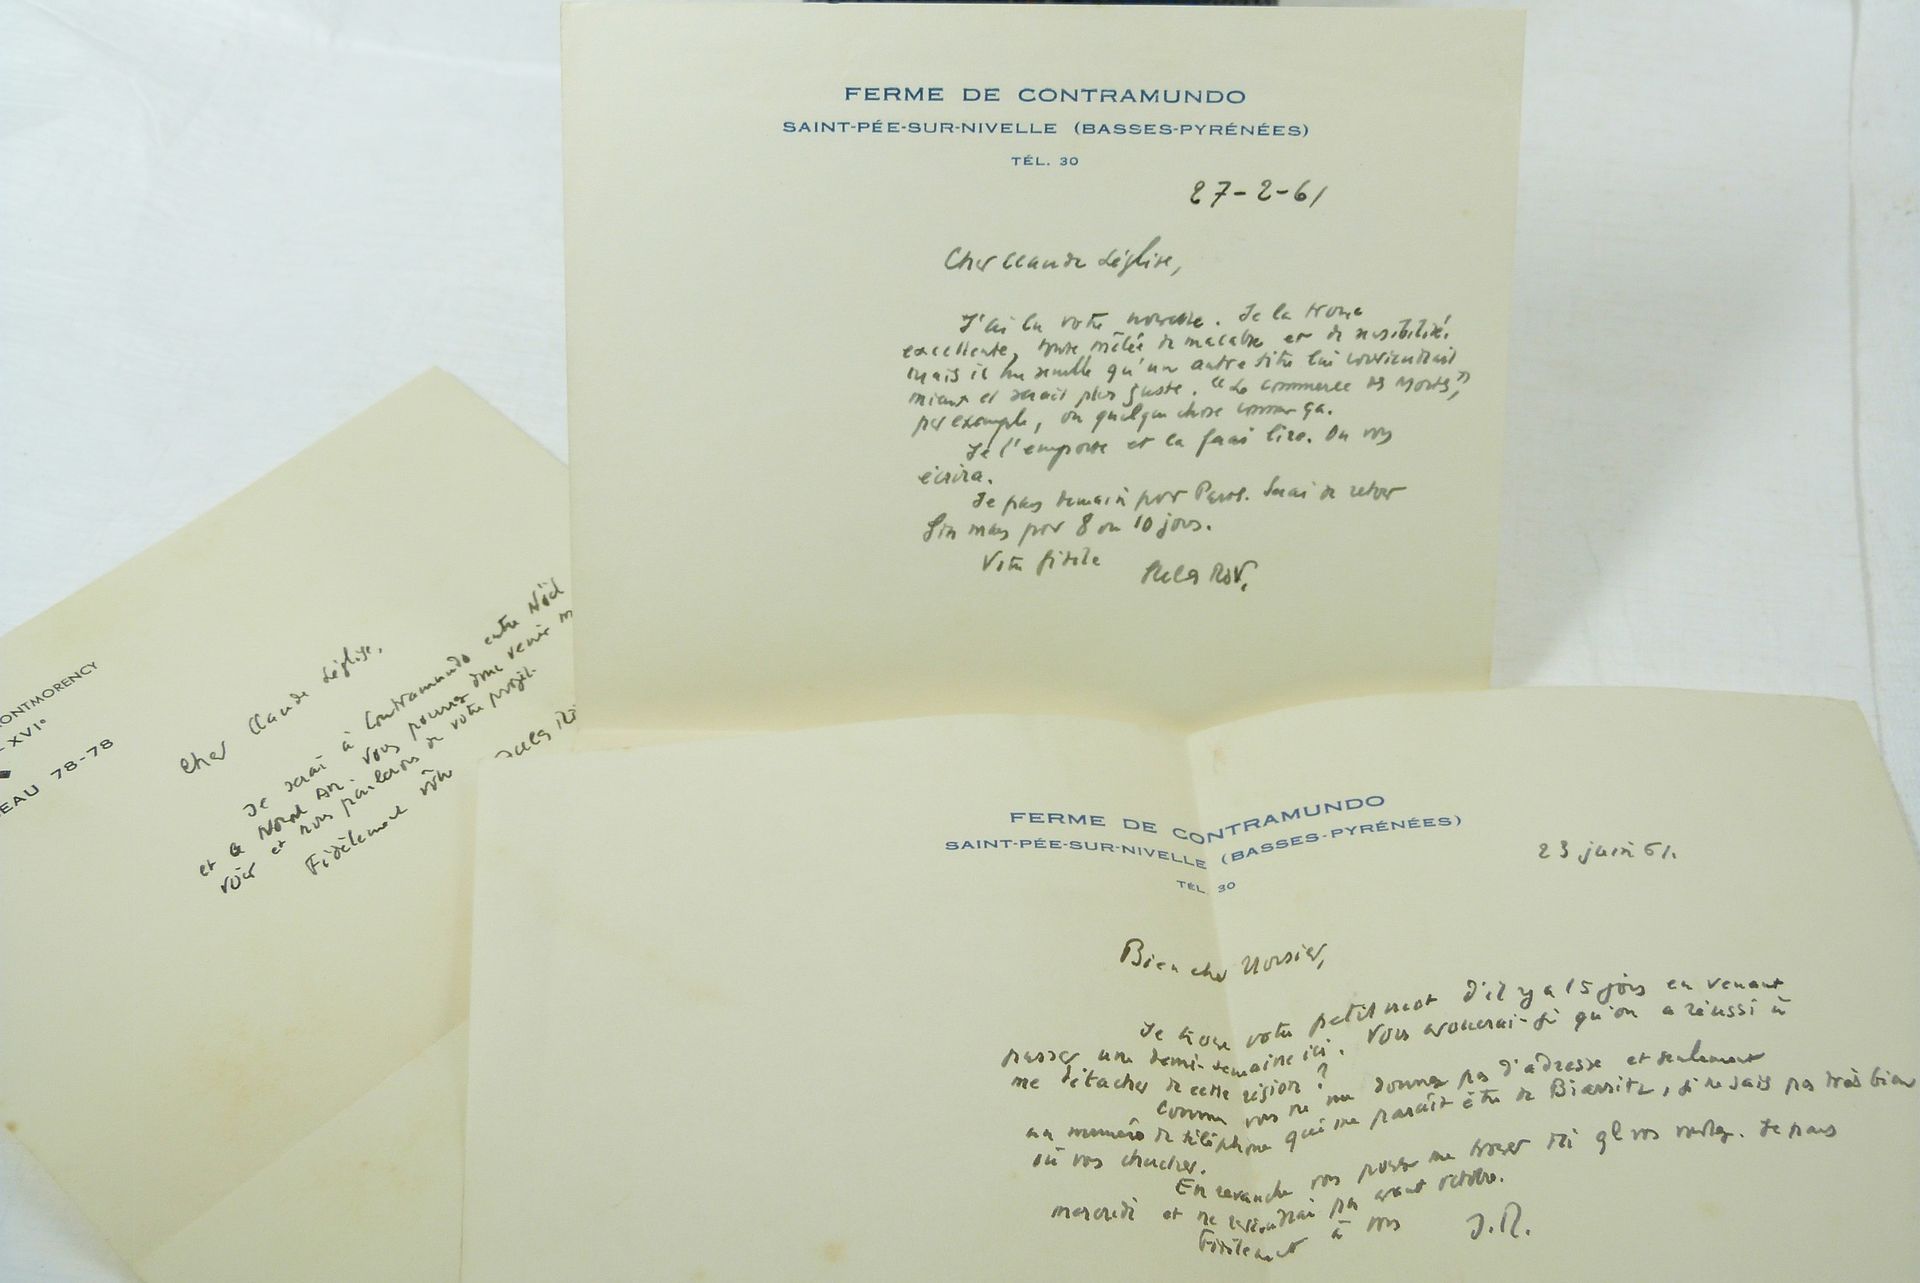 FERME DE CONTRAMUNDO
SAINT-PÉE-SUR-NIVELLE (BASSES-PYRÉNÉES)
TÉL. 30
27-2-61
Cher Claude Léglise,
J'ai lu votre nouvelle. Je la trouve
excellente, toute mêlée de macabre et de sensibilité.
Mais il me semble qu'un autre titre lui conviendrait
mieux et serait plus juste. "Le commerce des morts,"
par exemple, ou quelque chose comme ça.
Je l'emporte et la ferai lire. On vous
écrira.
Je pars demain pour Paris. Serai de retour
fin mars pour 8 ou 10 jours.
Votre fidèle
ONTMORENCY
XVIe
EAU 78-78
Cher Claude Léglise,
Je serai à Contramundo entre Noël
et le Nouvel An. Vous pourrez donc venir m
voir et nous parlerons de votre projet.
Fidèlement vôtre
FERME DE CONTRAMUNDO
SAINT-PÉE-SUR-NIVELLE (BASSES-PYRÉNÉES)
TÉL. 30
23 juin 61.
Bien cher Monsieur,
Je trouve votre petit mot d'il y a 15 jours en venant
passer une demi-semaine ici. Vous avouerai-je qu'on a réussi à
me détacher de cette région ?
Comme vous ne me donnez pas d'adresse et seulement
un numéro de téléphone qui me paraît être de Biarritz, je ne sais pas très bien
où vous chercher.
En revanche vous pouvez me trouver ici vous voulez. Je pars
mercredi et ne reviendrai pas avant octobre.
Fidèlement à vous
J.R.